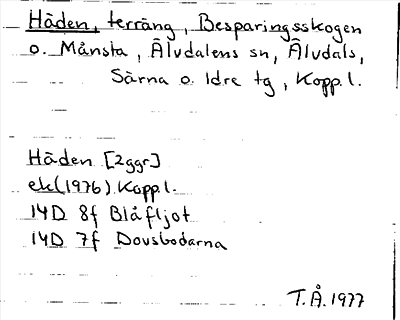 Häden, terräng, Besparingsskogen
o. Månsta, Älvdalens sn, Älvdals,
Särna o. Idre tg, Kopp. l.
Häden [2ggr]
ek(1976) Kopp l.
14D 8f Blåfljot
14D 7f Dovsbodarna
T.Å. 1977